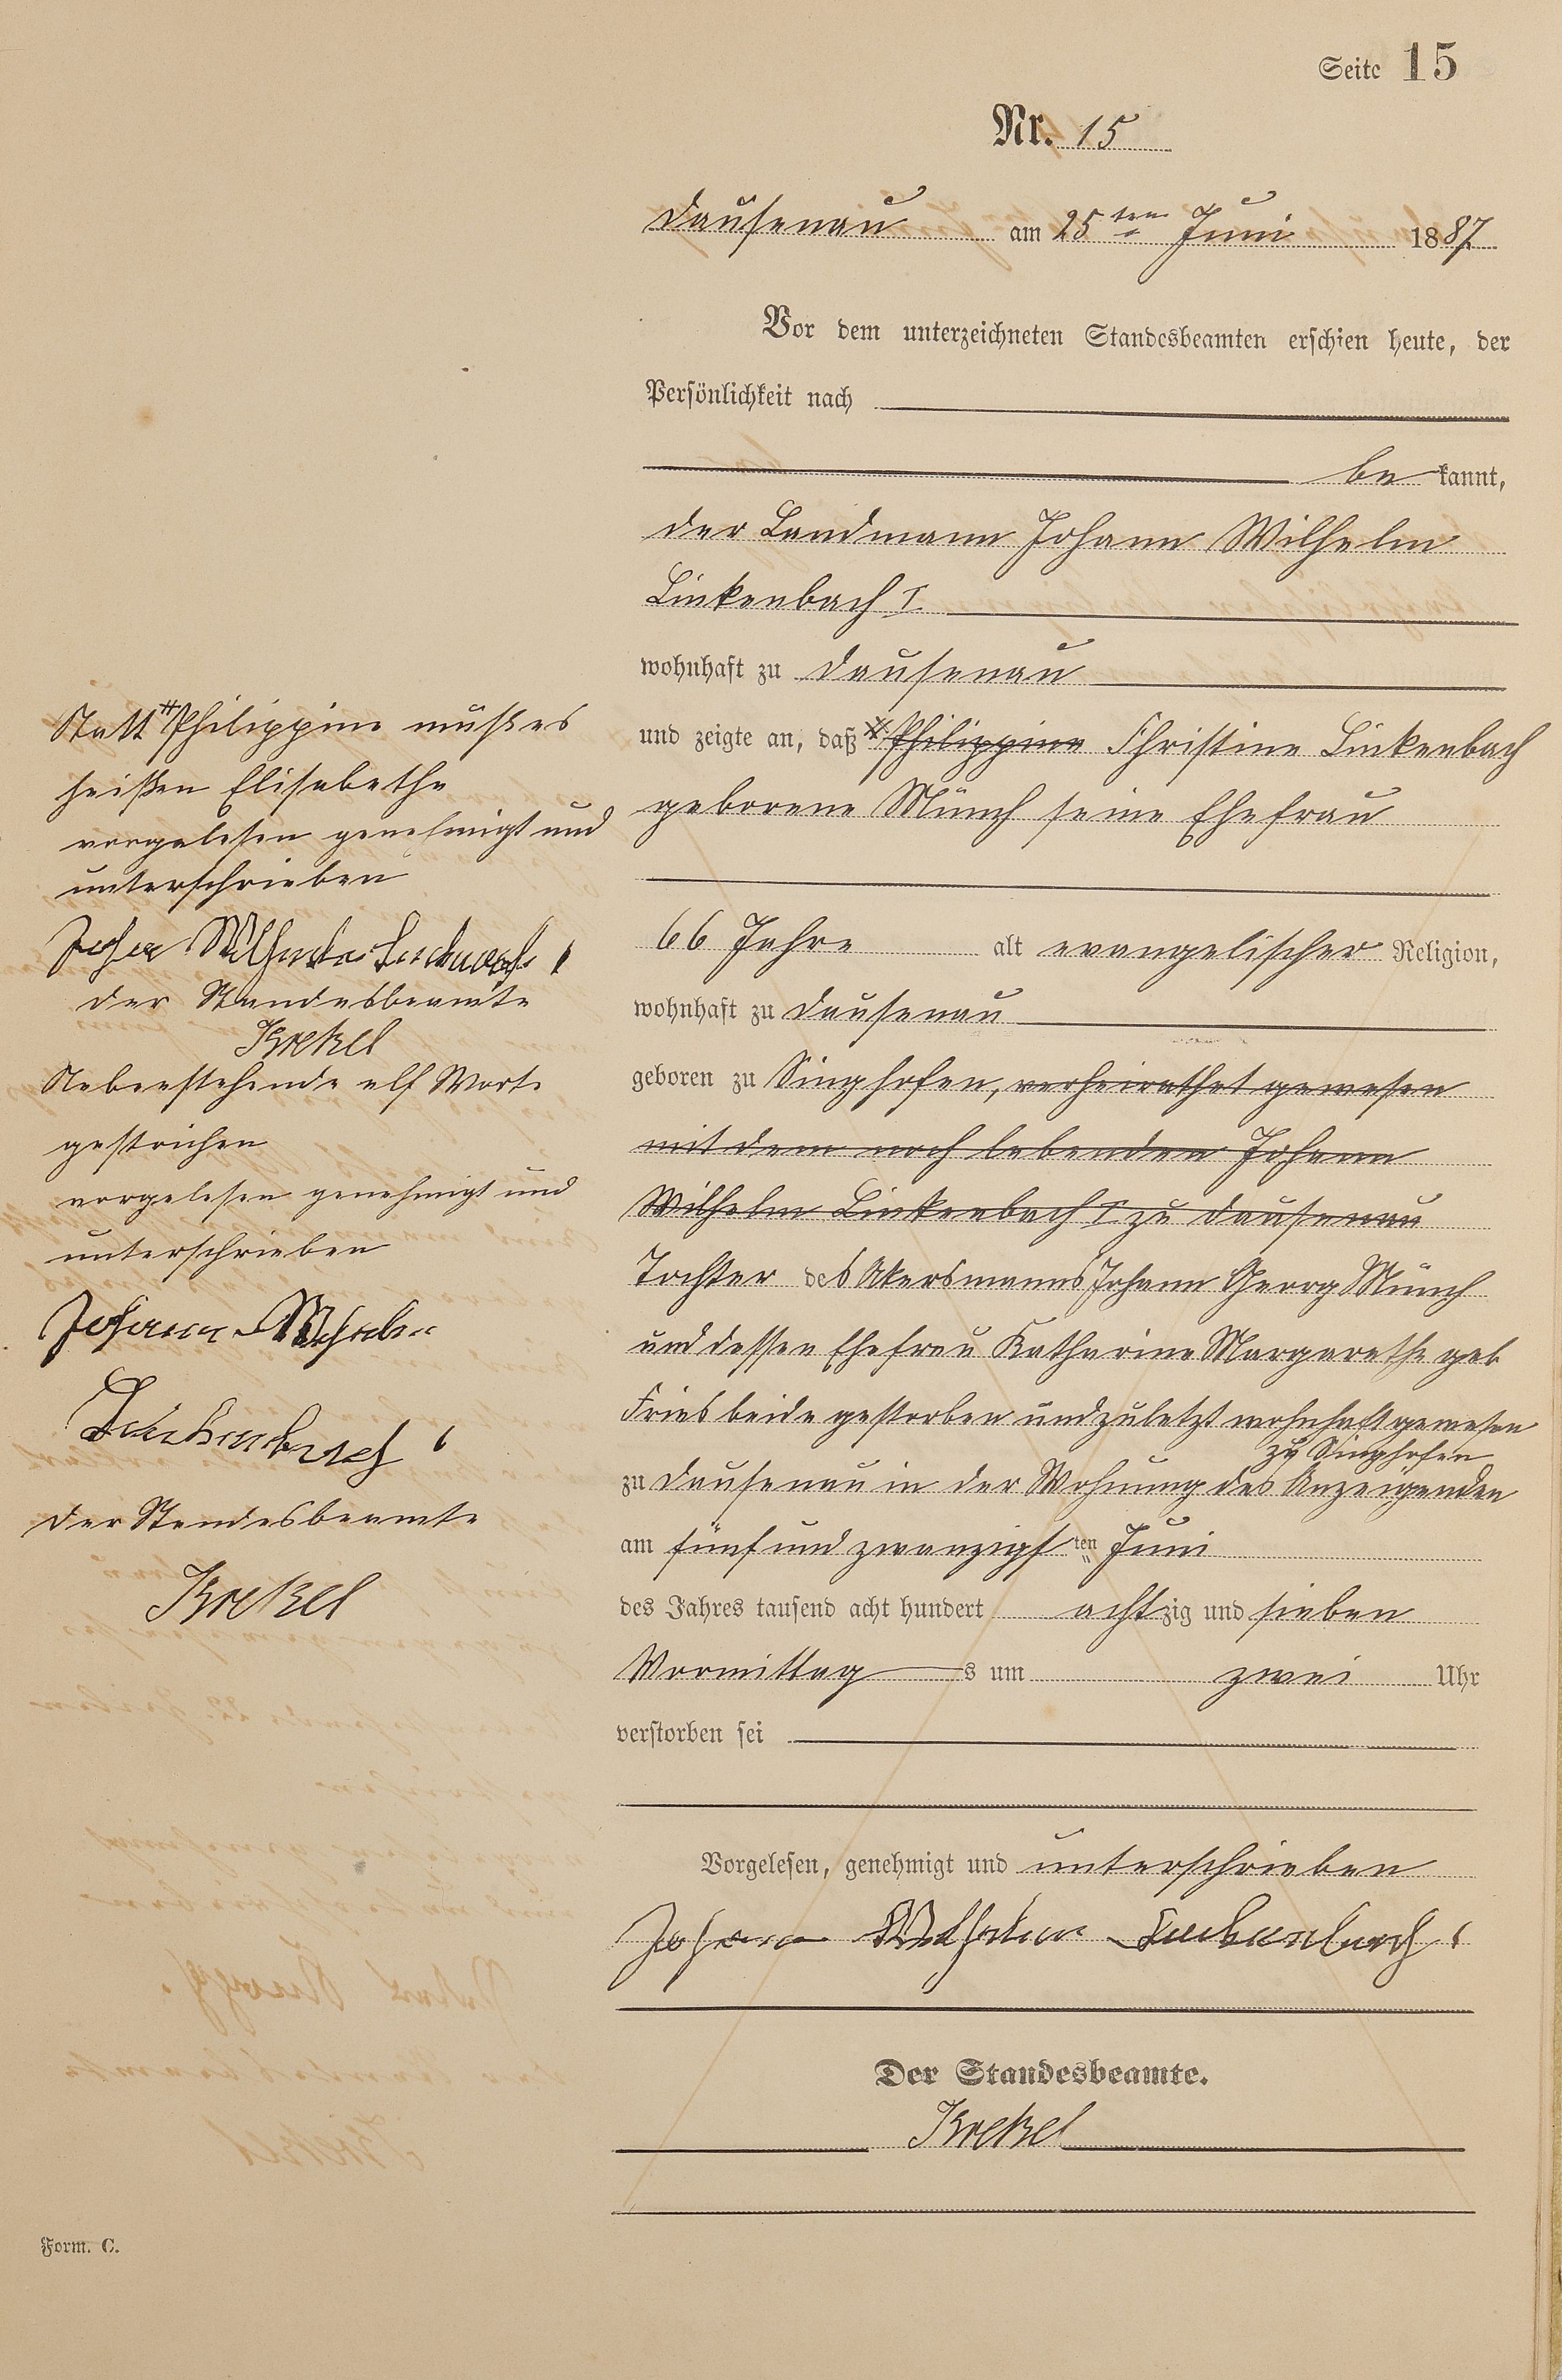 Seite 15
Nr. 15
Dausenau am 25ten Juni 1887
Vor dem unterzeichneten Standesbeamten erschien heute, der
Persönlichkeit nach
be kannt,
der Landmann Johann Wilhelm
Linkenbach I.
wohnhaft zu Dausenau
und zeigte an, daß # Philippine Christine Linkenbach
geborene Münch seine Ehefrau
66 Jahre alt evangelischer Religion,
wohnhaft zu Dausenau
geboren zu Singhofen, verheirathet gewesen
mit dem noch lebenden Johann
Wilhelm Linkenbach I zu Dausenau
Tochter des Akersmanns Johann Georg Münch
und dessen Ehefrau Katharine Margarethe geb
Fries beide gestorben und zuletzt wohnhaft gewesen
zu Singhofen
zu Dausenau in der Wohnung des Anzeigenden
am fünf und zwanzigsten Juni
des Jahres tausend acht hundert achtzig und sieben
Vormittags um zwei Uhr
verstorben sei
Vorgelesen, genehmigt und unterschrieben
Johann Wilhelm Linkenbach I
Der Standesbeamte.
Krekel
Statt # Philippine muß es
heißen Elisabethe
vorgelesen genehmigt und
unterschrieben
Johann Wilhelm Linkenbach I
der Standesbeamte
Krekel
Nebenstehende elf Worte
gestrichen
vorgelesen genehmigt und
unterschrieben
Johann Wilhelm
Linkenbach I
der Standesbeamte
Krekel
Form. C.